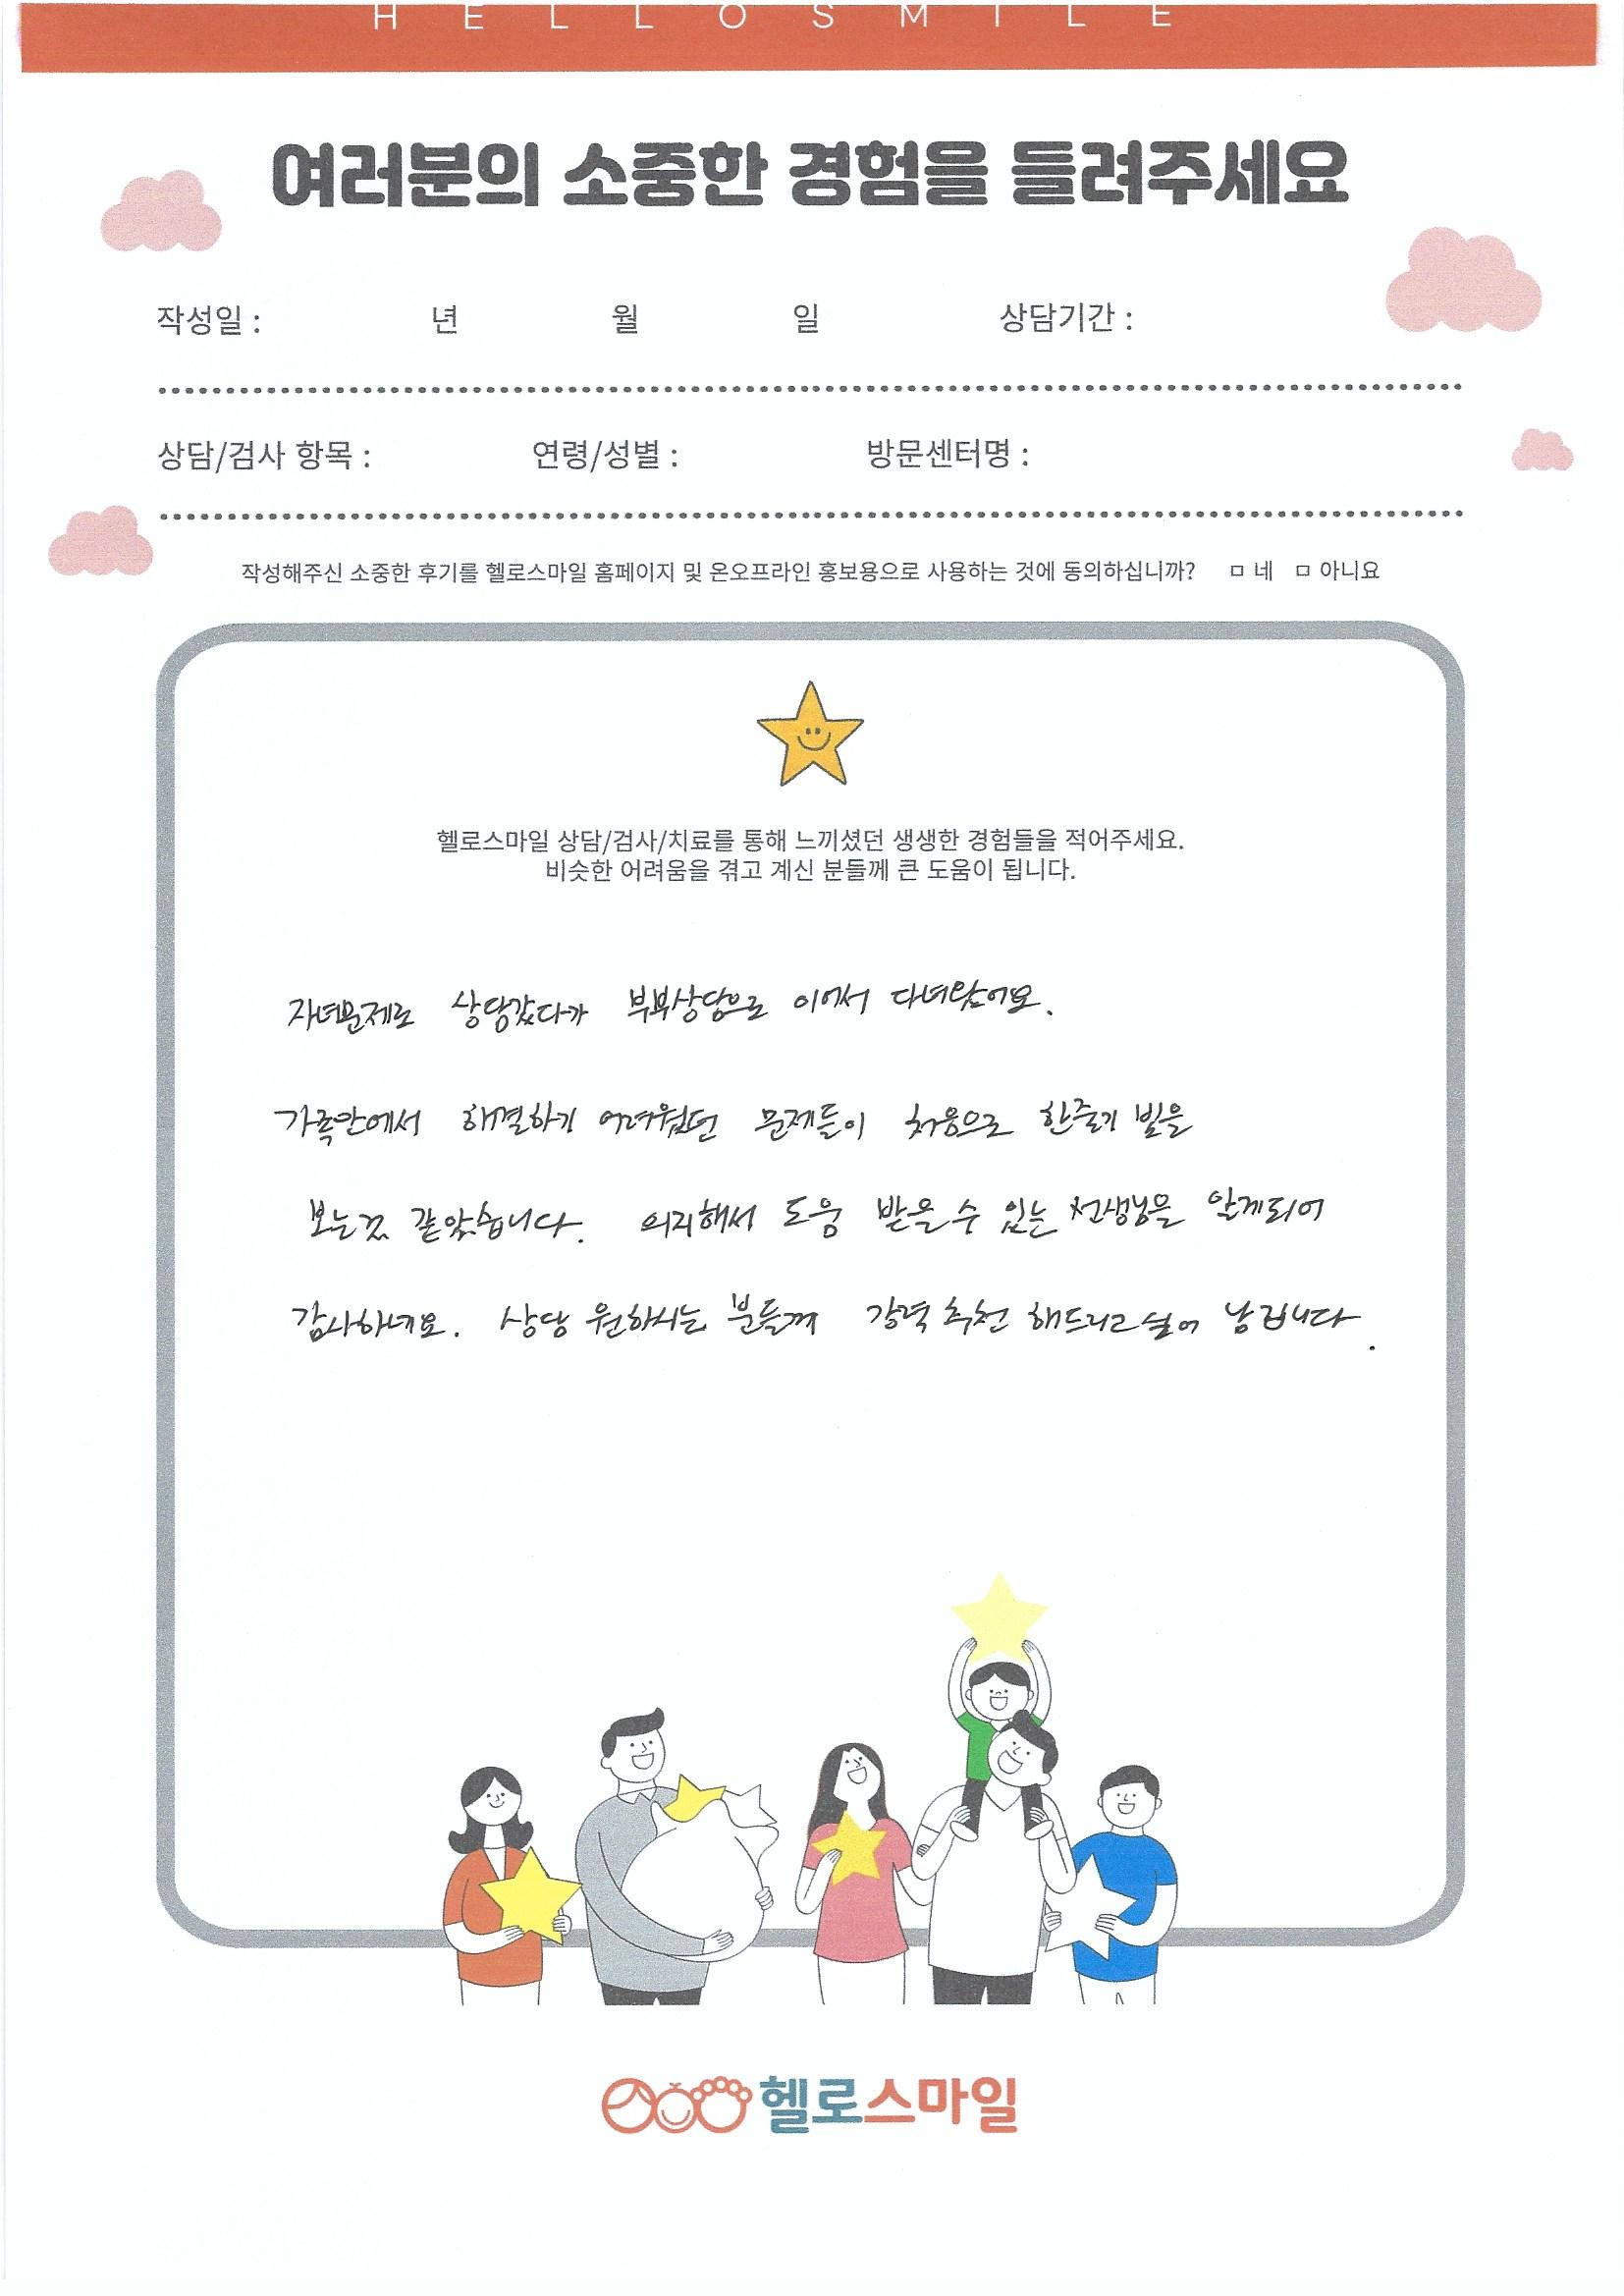 HELLOSMILE
여러분의 소중한 경험을 들려주세요
작성일 : 년 월 일 상담기간 :
상담/검사 항목 : 연령/성별 : 방문센터명 :
작성해주신 소중한 후기를 헬로스마일 홈페이지 및 온오프라인 홍보용으로 사용하는 것에 동의하십니까? ㅁ 네 ㅁ 아니요
헬로스마일 상담/검사/치료를 통해 느끼셨던 생생한 경험들을 적어주세요.
비슷한 어려움을 겪고 계신 분들께 큰 도움이 됩니다.
자녀문제로 상담갔다가 부부상담으로 이어서 다녀왔어요.
가족안에서 해결하기 어려웠던 문제들이 처음으로 한줄기 빛을
보는것 같았습니다. 의지해서 도움 받을 수 있는 선생님을 알게되어
감사하네요. 상담 원하시는 분들께 강력 추천 해드리고 싶어 남깁니다.
헬로스마일